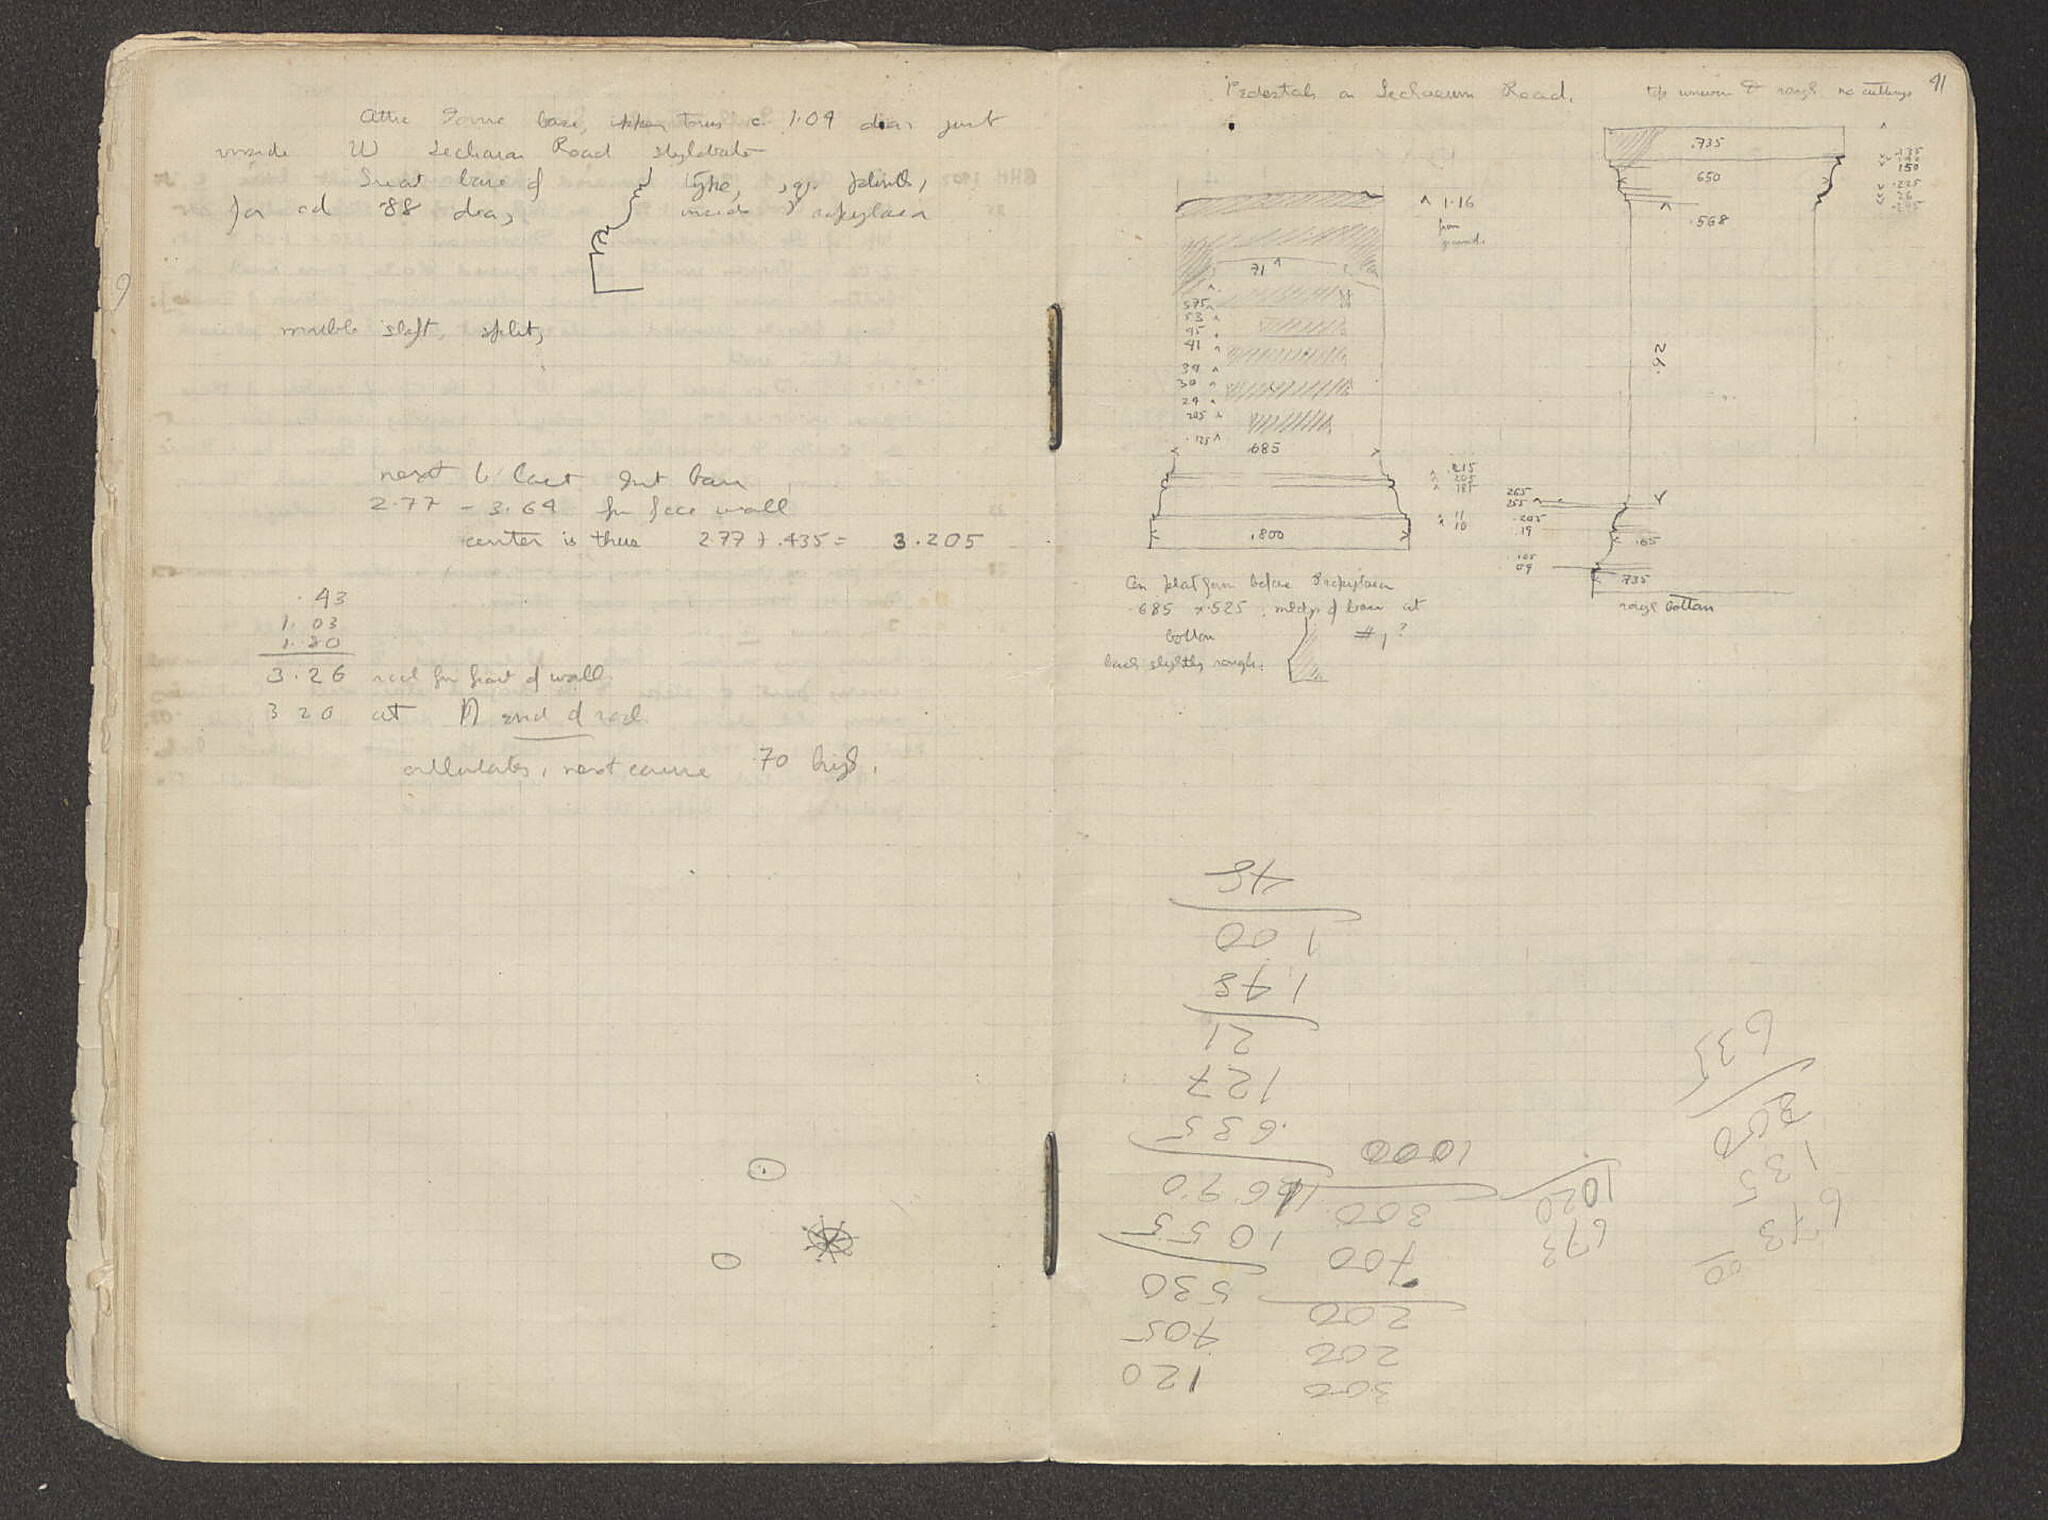 Attic Ionic base, upper torus c. 1.04 diam just
inside W Lechaeum Road stylobate
Great base of type, sq. plinth,
for col .88 dia, inside Propylaea
marble shaft, split,
next to last Int base
2.77 - 3.64 fr face wall
center is thus 2.77 + .435 = 3.205
.43
1.03
1.80
3.26 real fr front of wall
3 20 at N end of
orthostates, next course .70 high.
41
Pedestals on Lechaeum Road.
top uneven & rough no cuttings
.735
650
.568
.135
150
.225
26
1.16
from
ground
71
575
53
45
41
39
30
24
205
.125
.685
.215
205
185
11
10
.800
265
255
.205
.19
.65
.105
09
.735
rough bottom
On platform before Propylaea
.685 x .525, mldg of base at
bottom #1?
back slightly rough.
120
705
530
1055
1690
.635
127
21
1 48
1 00
48
300
200
200
700
300
1000
673
1020
00
673
135
200
635